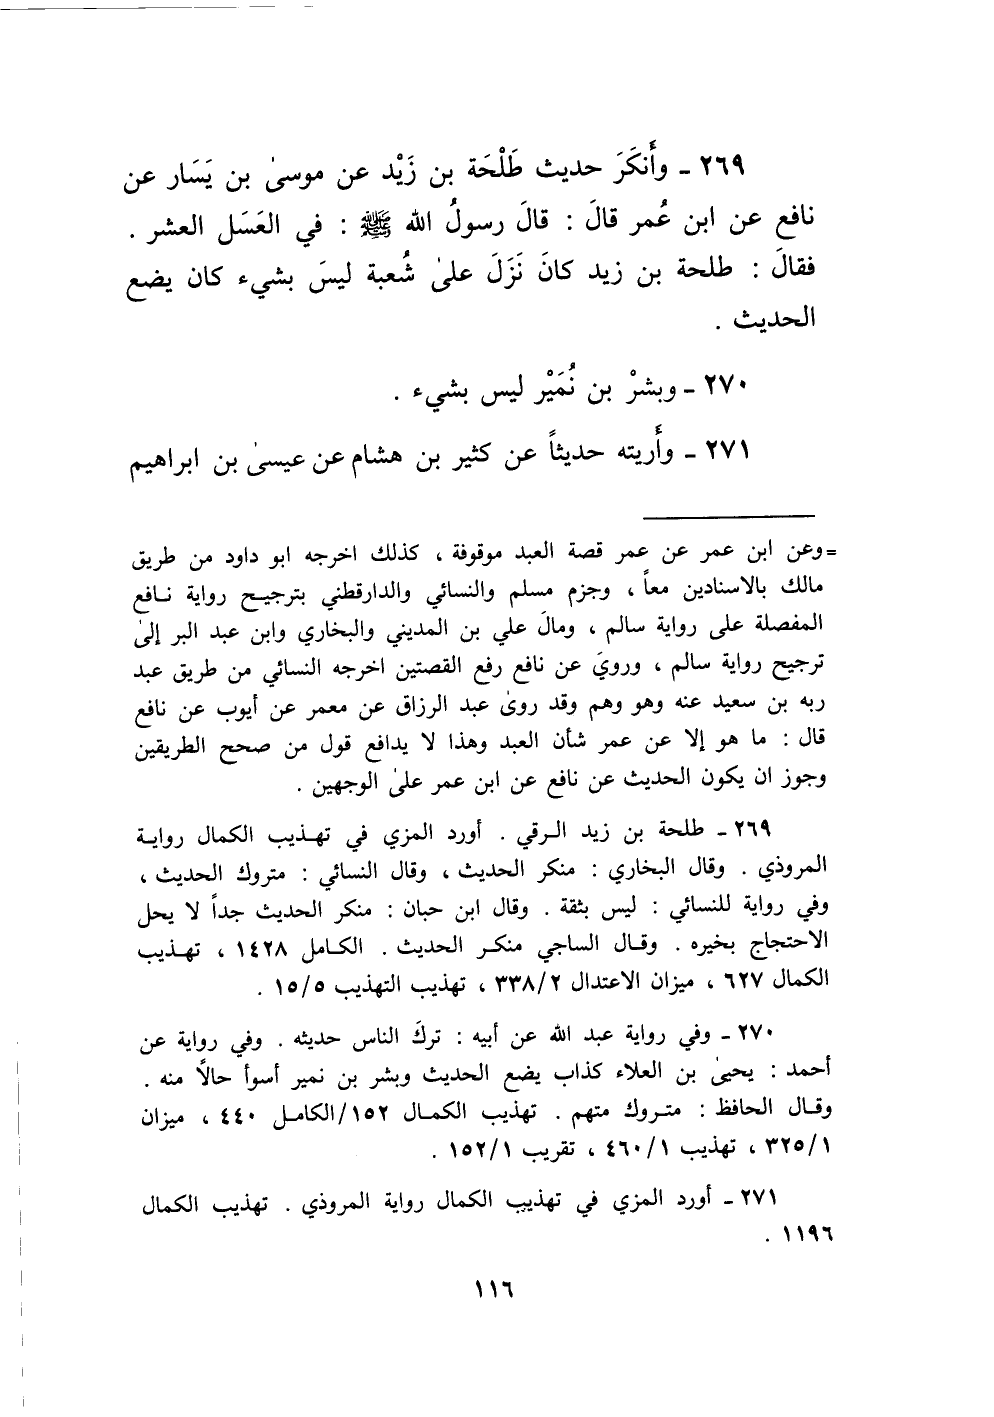 ٢٦٩ ـ وأَنكَرَ حديث طَلْحَة بن زَيْد عن موسىٰ بن يَسَار عن
نافع عن ابن عُمر قالَ : قالَ رسولُ الله ﷺ : في العَسَل العشر .
فقالَ : طلحة بن زيد كانَ نَزَلَ علىٰ شُعبة ليسَ بشيء كان يضع
الحديث .
٢٧٠ ـ وبشرْ بن نُمَيْر ليس بشيء .
٢٧١ ـ وأَريته حديثاً عن كثير بن هشام عن عيسىٰ بن ابراهيم
= وعن ابن عمر عن عمر قصة العبد موقوفة ، كذلك اخرجه ابو داود من طريق
مالك بالاسنادين معاً ، وجزم مسلم والنسائي والدارقطني بترجيح رواية نافع
المفصلة على رواية سالم ، ومالَ علي بن المديني والبخاري وابن عبد البر إلىٰ
ترجيح رواية سالم ، ورويَ عن نافع رفع القصتين اخرجه النسائي من طريق عبد
ربه بن سعيد عنه وهو وهم وقد روىٰ عبد الرزاق عن معمر عن أيوب عن نافع
قال : ما هو إلا عن عمر شأن العبد وهذا لا يدافع قول من صحح الطريقين
وجوز ان يكون الحديث عن نافع عن ابن عمر علىٰ الوجهين .
٢٦٩ ـ طلحة بن زيد الرقي . أورد المزي في تهذيب الكمال رواية
المروذي . وقال البخاري : منكر الحديث ، وقال النسائي : متروك الحديث ،
وفي رواية للنسائي : ليس بثقة . وقال ابن حبان : منكر الحديث جداً لا يحل
الاحتجاج بخيره . وقال الساجي منكر الحديث . الكامل ١٤٢٨ ، تهذيب
الكمال ٦٢٧ ، ميزان الاعتدال ٣٣٨/٢ ، تهذيب التهذيب ١٥/٥ .
٢٧٠ ـ وفي رواية عبد الله عن أبيه : تركَ الناس حديثه . وفي رواية عن
أحمد : يحيىٰ بن العلاء كذاب يضع الحديث وبشر بن نمير أسوأ حالاً منه .
وقال الحافظ : متروك متهم . تهذيب الكمال ١٥٢/الكامل ٤٤٠ ، ميزان
٣٢٥/١ ، تهذيب ٤٦٠/١ ، تقريب ١٥٢/١ .
٢٧١ ـ أورد المزي في تهذيب الكمال رواية المروذي . تهذيب الكمال
١١٩٦ .
١١٦